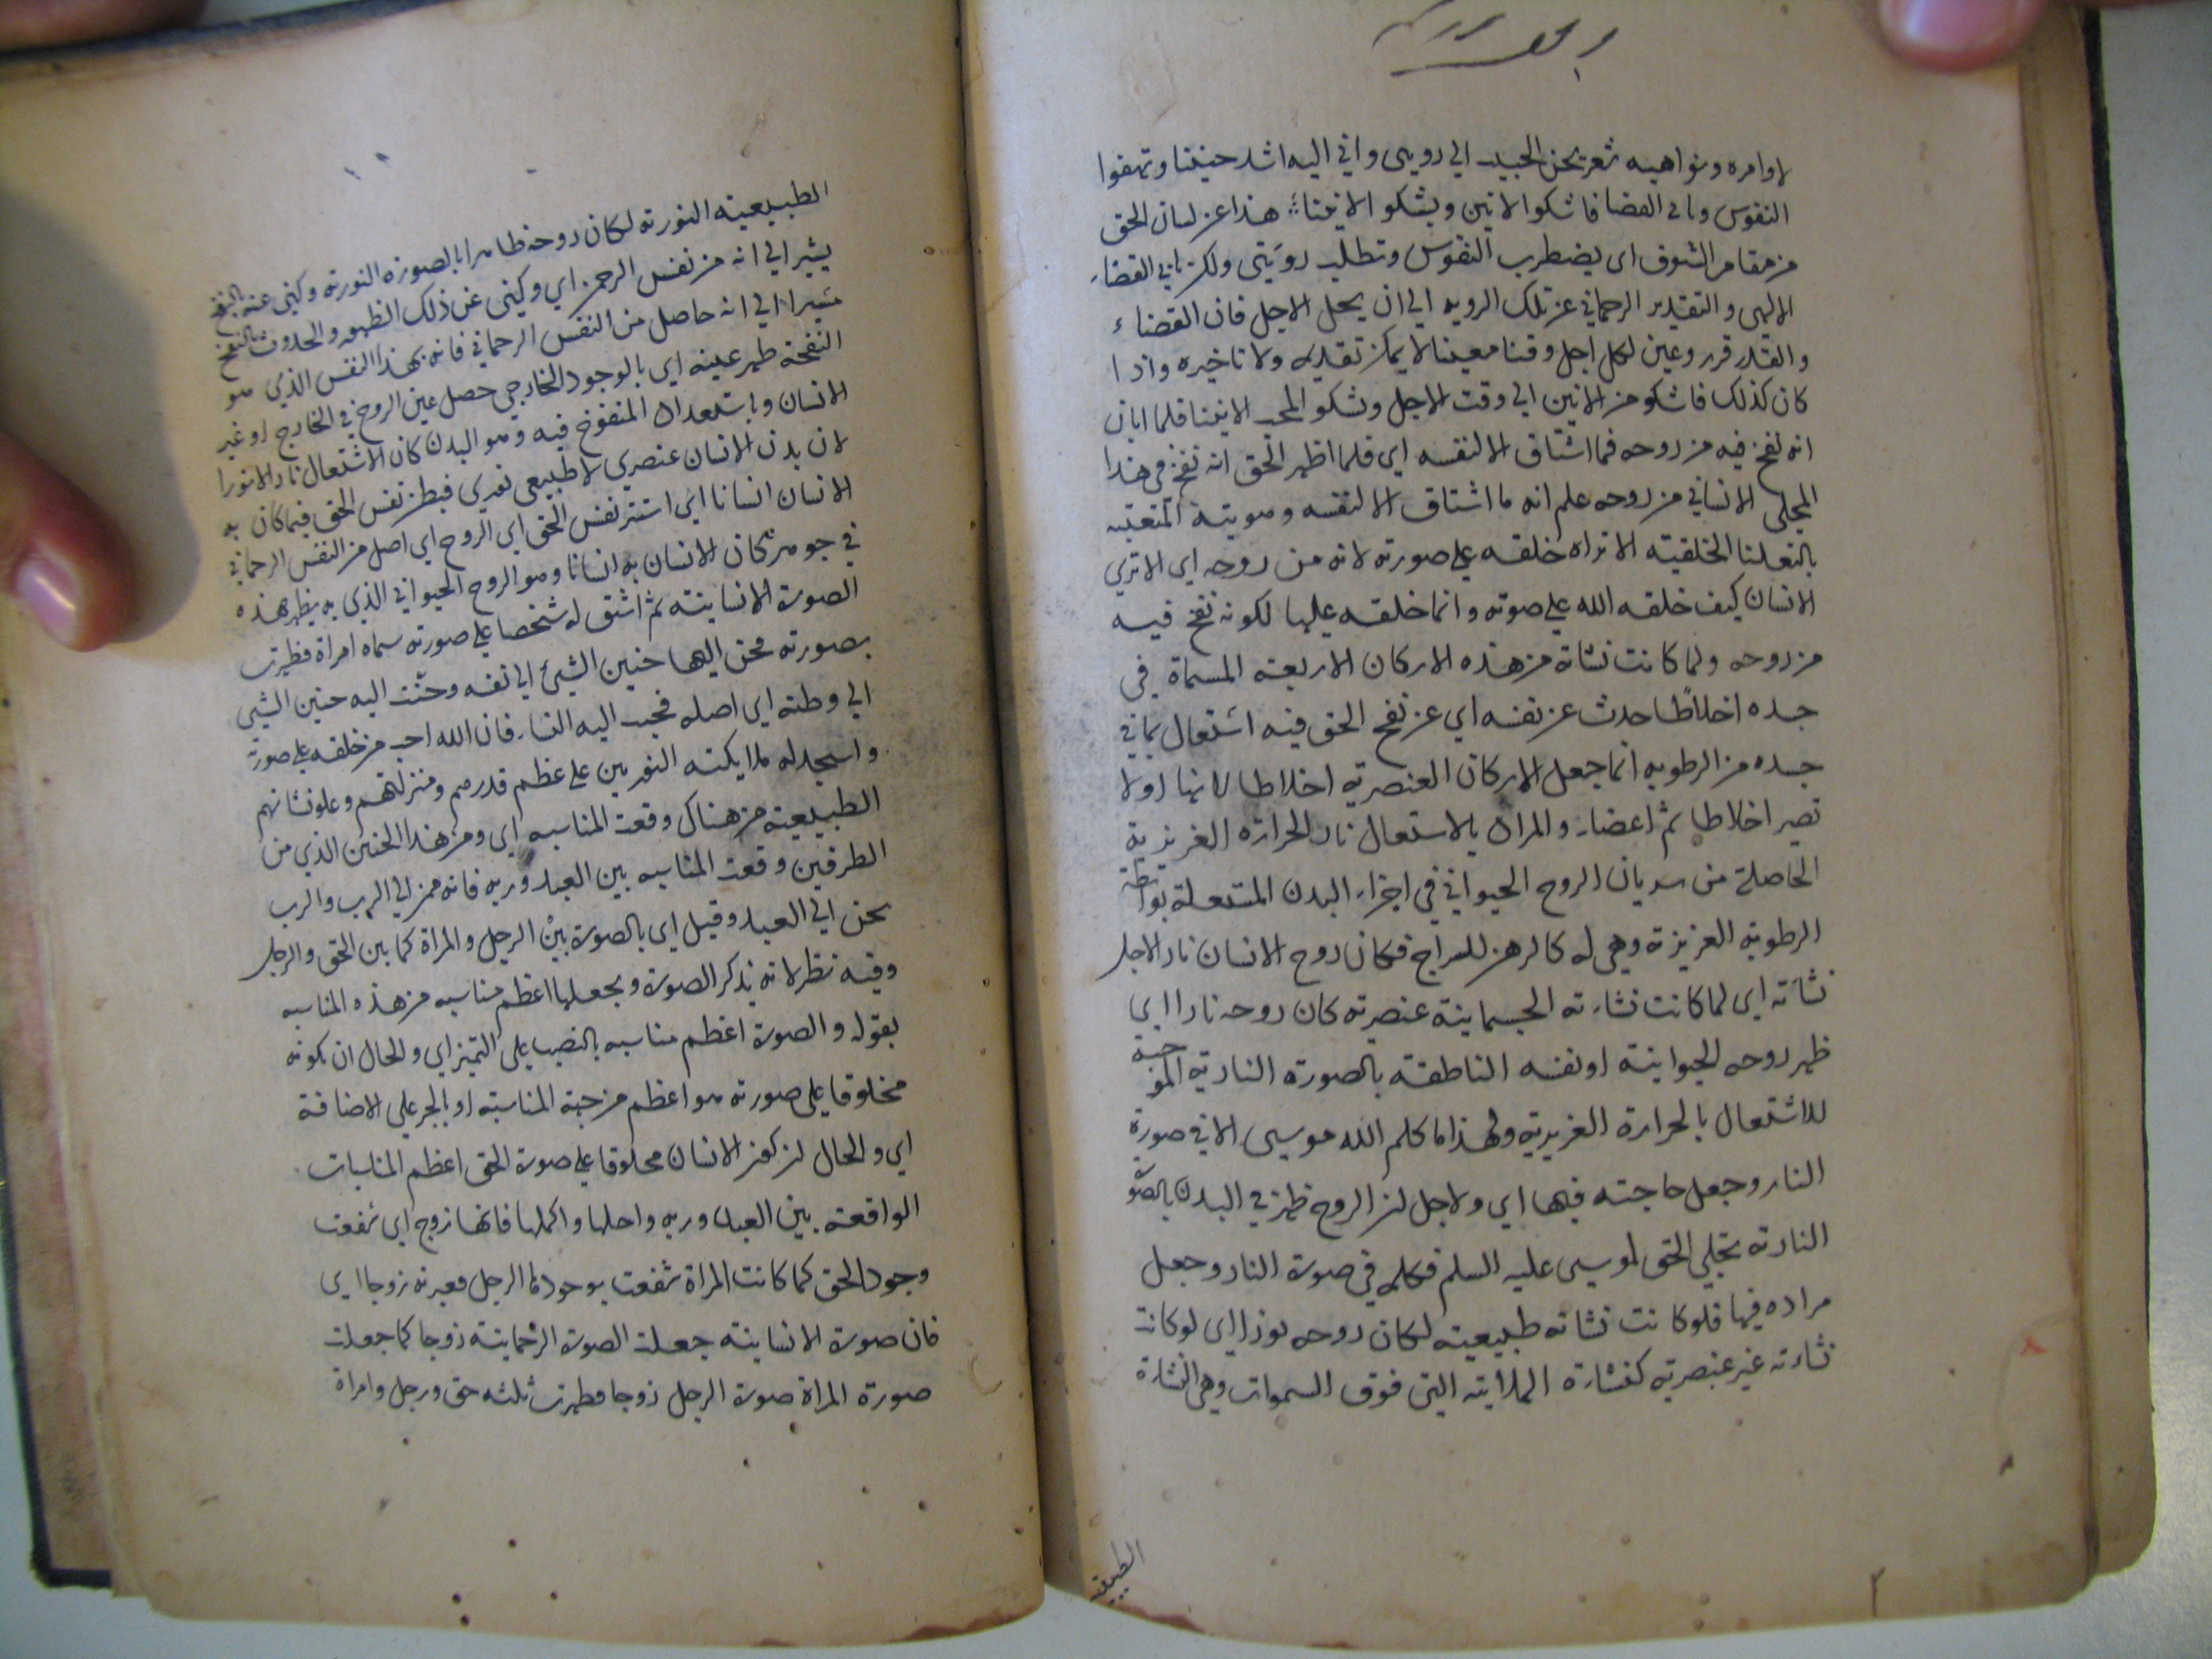 لاوامره ونواهيه شعر يحن الحبيب الي رويتي واني اليه اشد حنينا وتهفوا
النفوس ويابي القضا فاشكوا الانين ويشكو الانينا هذا عن لسان الحق
من مقام الشوق اي يضطرب النفوس وتطلب رويتي ولكن يابي القضاء
الالهي والتقدير الرحماني عن تلك الرويه الي ان يحل الاجل فان القضاء
والقدر قرر وعين لكل اجل وقتا معينا لا يمكن تقديمه ولا تاخيره واذا
كان كذلك فاشكو من الانين الي وقت الاجل ويشكو المحب الانينا فلما ابان
انه نفخ فيه من روحه فما اشتاق الا لنفسه اي فلما اظهر الحق انه نفخ في هذا
المجلي الانساني من روحه علم انه ما اشتاق الا لنفسه وهويته المتعينه
الخلقيته الا تراه خلقه علي صورته لانه من روحه اي الا تري
الانسان كيف خلقه الله علي صورته وانما خلقه عليها لكونه نفخ فيه
من روحه ولما كانت نشاته من هذه الاركان الاربعه المسماة في
جسده اخلاطًا حدث عن نفسه اي عن نفخ الحق فيه اشتعال بما في
جسده من الرطوبه انما جعل الاركان العنصريه اخلاطا لانها اولا
تصير اخلاطا ثم اعضاء والمراد بالاستعال نار الحرارة الغريزية
الحاصلة من سريان الروح الحيواني في اجزاء البدن المشتعلة بواسطة
الرطوبة الغريزية وهي له كالدهن للسراج فكان روح الانسان نارا لاجل
نشأته اي لما كانت نشاءته الجسمانية عنصرته كان روحه نارا اي
ظهر روحه الحيوانية او نفسه الناطقة بالصورة النارية الموجبة
للاشتعال بالحرارة الغريزيه ولهذا ما كلم الله موسى الا في صورة
النار وجعل حاجته فيها اي ولاجل ان الروح ظهر في البدن بالصو
النارية تجلي الحق لموسى عليه السلم فكلمه في صورة النار وجعل
مراده فيها فلو كانت نشاته طبيعته لكان روحه نورا اي لو كانت
نشاءته غير عنصرية كنشاءة الملايكة التي فوق السموات وهي النشاءة
الطبيعية
الطبيعية النورته لكان روحه ظاهرا بالصورة النورته وكني عنه بالنفخ
يشير الي انه من نفس الرحمن اي وكني عن ذلك الظهور والحدوث بالنفخ
مشيرا الي انه حاصل من النفس الرحماني فانه بهذا النفس الذي هو
النفخة ظهر عينه اي بالوجود الخارجي حصل عين الروح في الخارج او عين
الانسان وباستعداد المنفوخ فيه وهو البدن كان الاشتعال نارا لا نورا
لان بدن الانسان عنصري لا طبيعي نوري فبطن نفس الحق فيما كان به
الانسان انسانا اي استتر نفس الحق اي الروح اي اصل من النفس الرحماني
في جوهر كان الانسان به انسانا وهو الروح الحيواني الذي به يظهر هذه
الصورة الانسانيته ثم اشتق له شخصا علي صورته سماه امراة فظهرت
بصورته فحن اليها حنين الشيئ الي نفسه وحنّت اليه حنين الشيئ
الي وطنه اي اصله فحبب اليه النساء فان الله احب من خلقه علي صورته
واسجد له ملايكته النوريين علي عظم قدرهم ومنزلتهم وعلو نشاتهم
الطبيعته من هناك وقعت المناسبه اي ومن هذا الحنين الذي من
الطرفين وقعت المناسبه بين العبد وربه فانه يحن الي الرب والرب
يحن الي العبد وقيل اي بالصورة بين الرجل والمراة كما بين الحق والرجل
وفيه نظر لانه يذكر الصورة ويجعلها اعظم مناسبه من هذه المناسبه
بقوله والصورة اعظم مناسبه بالنصب علي التميز اي والحال ان كونه
مخلوقا علي صورته هو اعظم من جهة المناسبته او بالجر علي الاضافة
اي والحال ان كون الانسان مخلوقا علي صورة الحق اعظم المناسبات
الواقعته بين العبد وربه واجلها واكملها فانها زوج اي شفعت
وجود الحق كما كانت المراة شفعت بوجودها الرجل فصيرته زوجا اي
فان صورة الانسانيته جعلت الصورة الرحمانيته زوجا كما جعلت
صورة المراة صورة الرجل زوجا فظهرت ثلثه حق ورجل وامراة